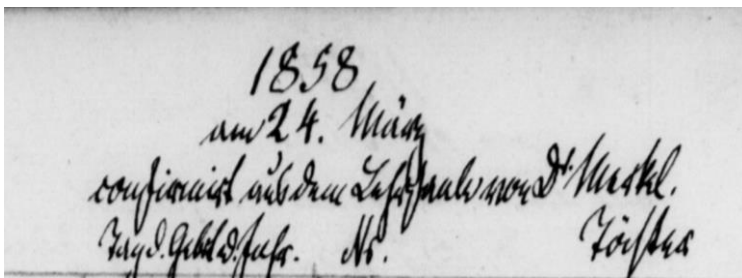 1858
am 24. März
confirmirt aus dem Lehrsaale von Dr. Merkel.
Tag d. Geb. u. d. Jahr. Nr. Töchter